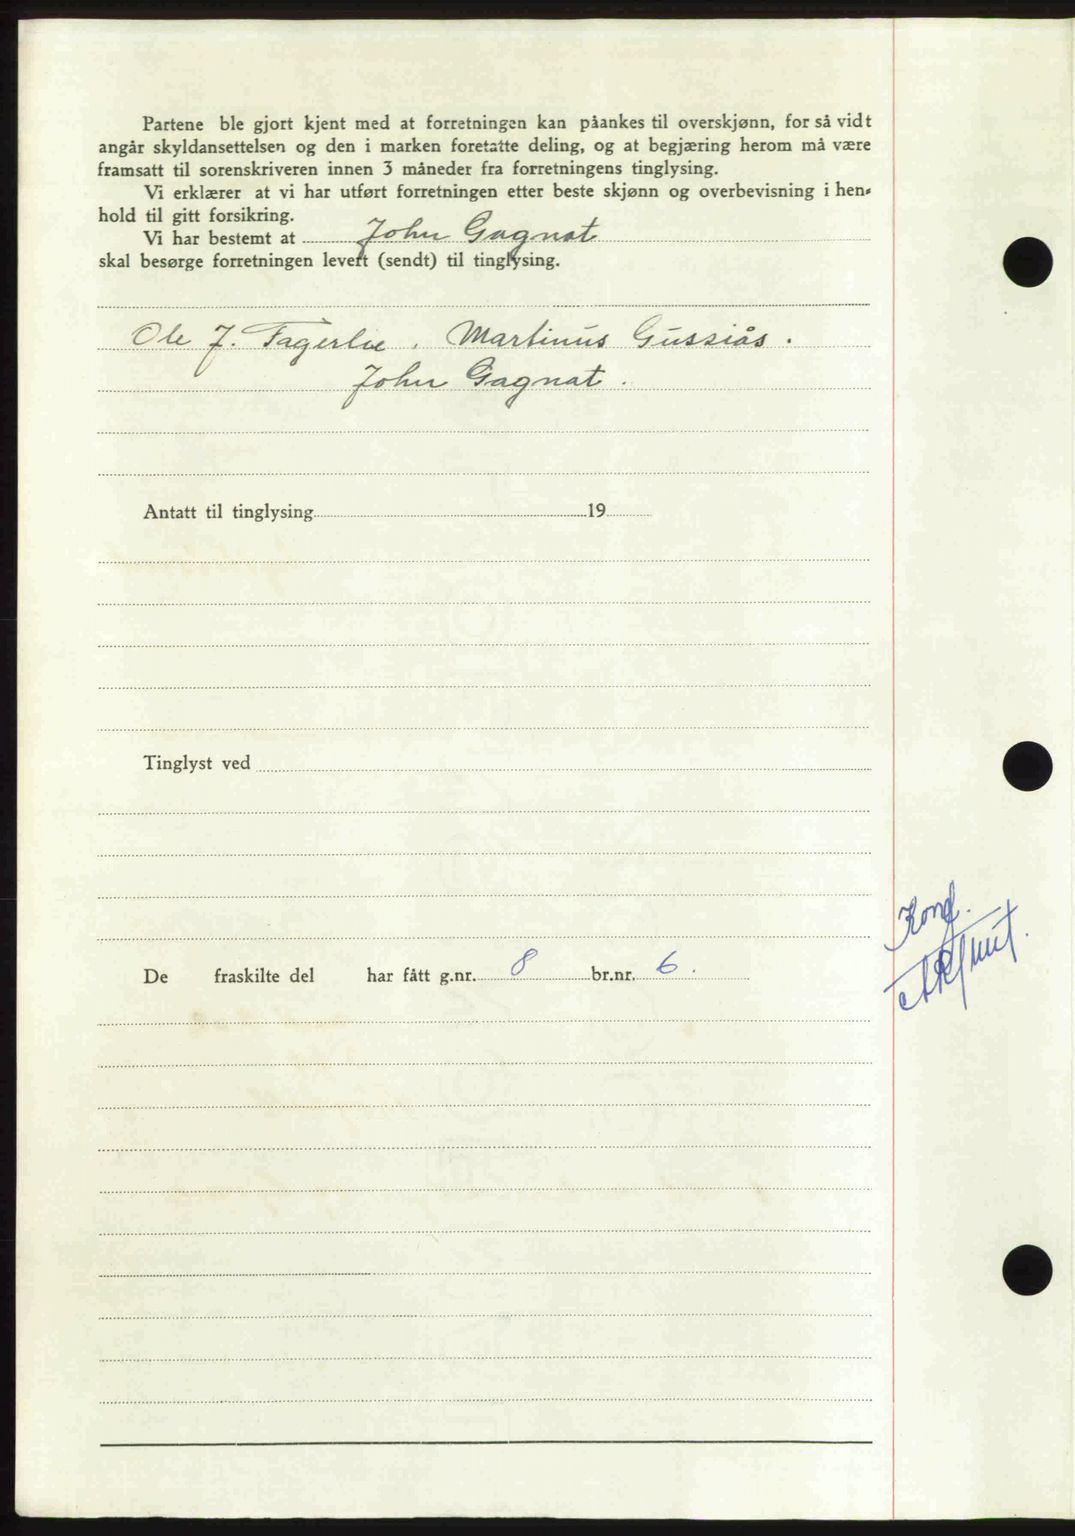 Partene ble gjort kjent med at forretningen kan påankes til overskjønn, for så vidt
angår skyldansettelsen og den i marken foretatte deling, og at begjæring herom må være
framsatt til sorenskriveren innen 3 måneder fra forretningens tinglysing.
Vi erklærer at vi har utført forretningen etter beste skjønn og overbevisning i hen-
hold til gitt forsikring.
Vi har bestemt at John Gagnat
skal besørge forretningen levert (sendt) til tinglysing.
Ole J. Fagerlie. Martinus Gussiås.
John Gagnat.
Antatt til tinglysing 19
Tinglyst ved
Konf.
De fraskilte del har fått g.nr. 8 br.nr. 6.